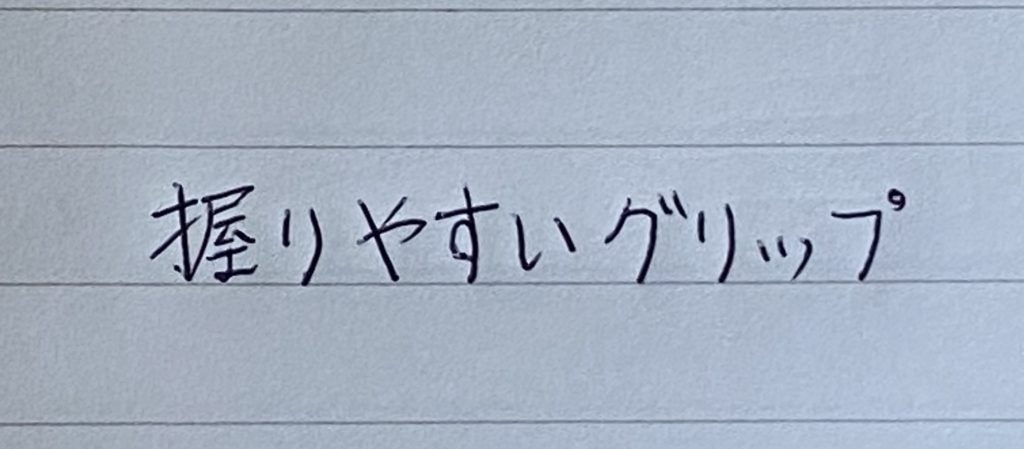 握りやすいグリップ